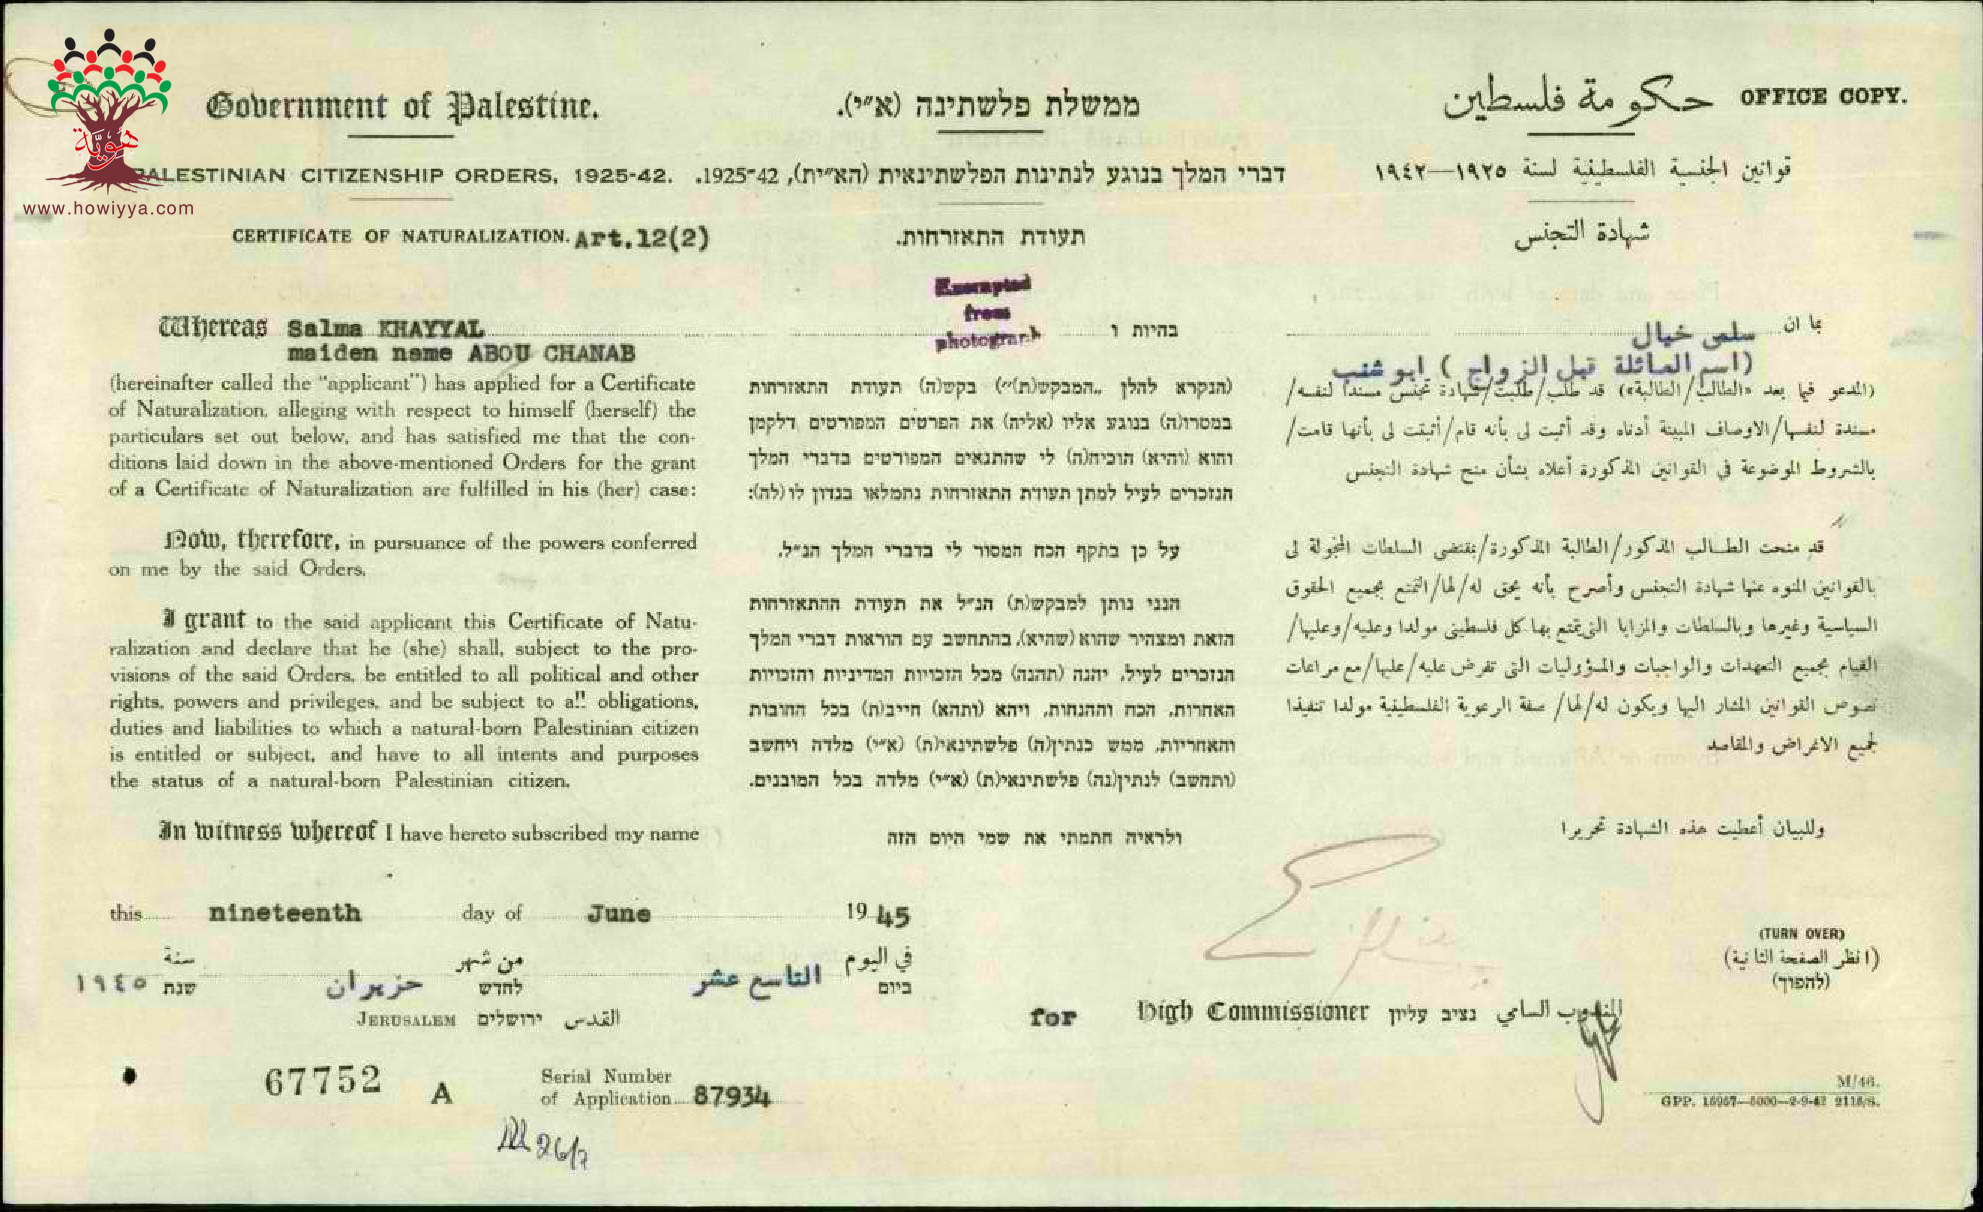 هوية
www.howiyya.com
Government of Palestine.
ממשלת פלשתינה (א״י).
حكومة فلسطين
OFFICE COPY.
PALESTINIAN CITIZENSHIP ORDERS, 1925-42.
דברי המלך בנוגע לנתינות הפלשתינאית (הא״ית), 1925-42.
قوانين الجنسية الفلسطينية لسنة ١٩٢٥—١٩٤٢
CERTIFICATE OF NATURALIZATION. Art.12(2)
תעודת התאזרחות.
شهادة التجنس
Exempted
from
photograph
Whereas Salma KHAYYAL
maiden name ABOU CHANAB
(hereinafter called the "applicant") has applied for a Certificate
of Naturalization, alleging with respect to himself (herself) the
particulars set out below, and has satisfied me that the con-
ditions laid down in the above-mentioned Orders for the grant
of a Certificate of Naturalization are fulfilled in his (her) case:
Now, therefore, in pursuance of the powers conferred
on me by the said Orders,
I grant to the said applicant this Certificate of Natu-
ralization and declare that he (she) shall, subject to the pro-
visions of the said Orders, be entitled to all political and other
rights, powers and privileges, and be subject to all obligations,
duties and liabilities to which a natural-born Palestinian citizen
is entitled or subject, and have to all intents and purposes
the status of a natural-born Palestinian citizen.
In witness whereof I have hereto subscribed my name
בהיות ו
(הנקרא להלן „המבקש(ת)״) בקש(ה) תעודת התאזרחות
במסרו(ה) בנוגע אליו (אליה) את הפרטים המפורטים דלקמן
והוא (והיא) הוכיח(ה) לי שהתנאים המפורטים בדברי המלך
הנזכרים לעיל למתן תעודת התאזרחות נתמלאו בנדון לו (לה):
על כן בתקף הכח המסור לי בדברי המלך הנ״ל,
הנני נותן למבקש(ת) הנ״ל את תעודת ההתאזרחות
הזאת ומצהיר שהוא (שהיא), בהתחשב עם הוראות דברי המלך
הנזכרים לעיל, יהנה (תהנה) מכל הזכויות המדיניות והזכויות
האחרות, הכח וההנחות, ויהא (ותהא) חייב(ת) בכל החובות
והאחריות, ממש כנתין(ה) פלשתינאי(ת) (א״י) מלדה ויחשב
(ותחשב) לנתין(נה) פלשתינאי(ת) (א״י) מלדה בכל המובנים.
ולראיה חתמתי את שמי היום הזה
بما ان سلمى خيال
(اسم العائلة قبل الزواج) ابو شنب
(المدعو فيما بعد «الطالب/الطالبة») قد طلب/طلبت/شهادة تجنس مسنداً لنفسه/
مسندة لنفسها/الاوصاف المبينة أدناه وقد أثبت لي بأنه قام/أثبتت لي بأنها قامت/
بالشروط الموضوعة في القوانين المذكورة أعلاه بشأن منح شهادة التجنس
قد منحت الطالب المذكور/الطالبة المذكورة/بمقتضى السلطات المخولة لي
بالقوانين المنوه عنها شهادة التجنس وأصرح بأنه يحق له/لها/التمتع بجميع الحقوق
السياسية وغيرها وبالسلطات والمزايا التي يتمتع بها كل فلسطيني مولدا وعليه/وعليها/
القيام بجميع التعهدات والواجبات والمسؤوليات التي تفرض عليه/عليها/مع مراعات
نصوص القوانين المشار اليها ويكون له/لها/ صفة الرعوية الفلسطينية مولدا تنفيذا
لجميع الاغراض والمقاصد
وللبيان أعطيت هذه الشهادة تحريرا
this nineteenth day of June 1945
في اليوم التاسع عشر من شهر حزيران سنة ١٩٤٥
ביום לחדש שנת
JERUSALEM ירושלים القدس
for High Commissioner נציב עליון المندوب السامي
(TURN OVER)
(انظر الصفحة الثانية)
(להפוך)
67752 A
Serial Number
of Application 87934
26/7
M/46.
GPP. 15957—5000—2-9-42 2116/S.